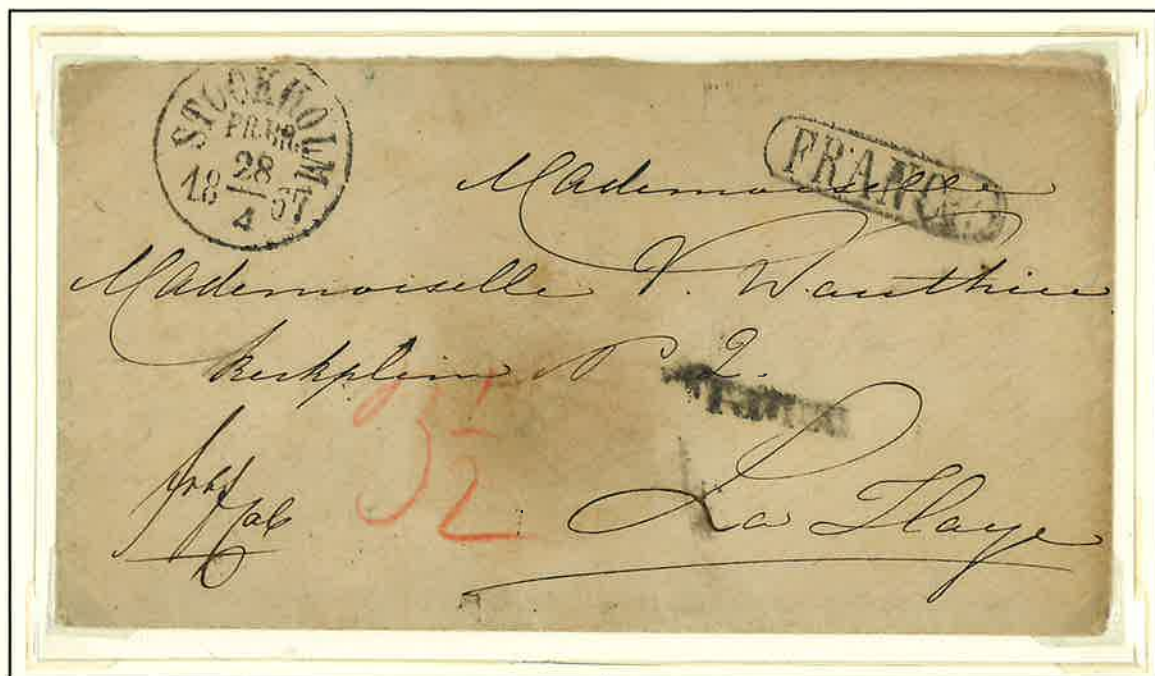 STOCKHOLM
PR.BR.
28
18 67
4
FRANCO
Mademoiselle
Mademoiselle V. Wauthier
Kerkplein N 2.
3 1/2
La Haye